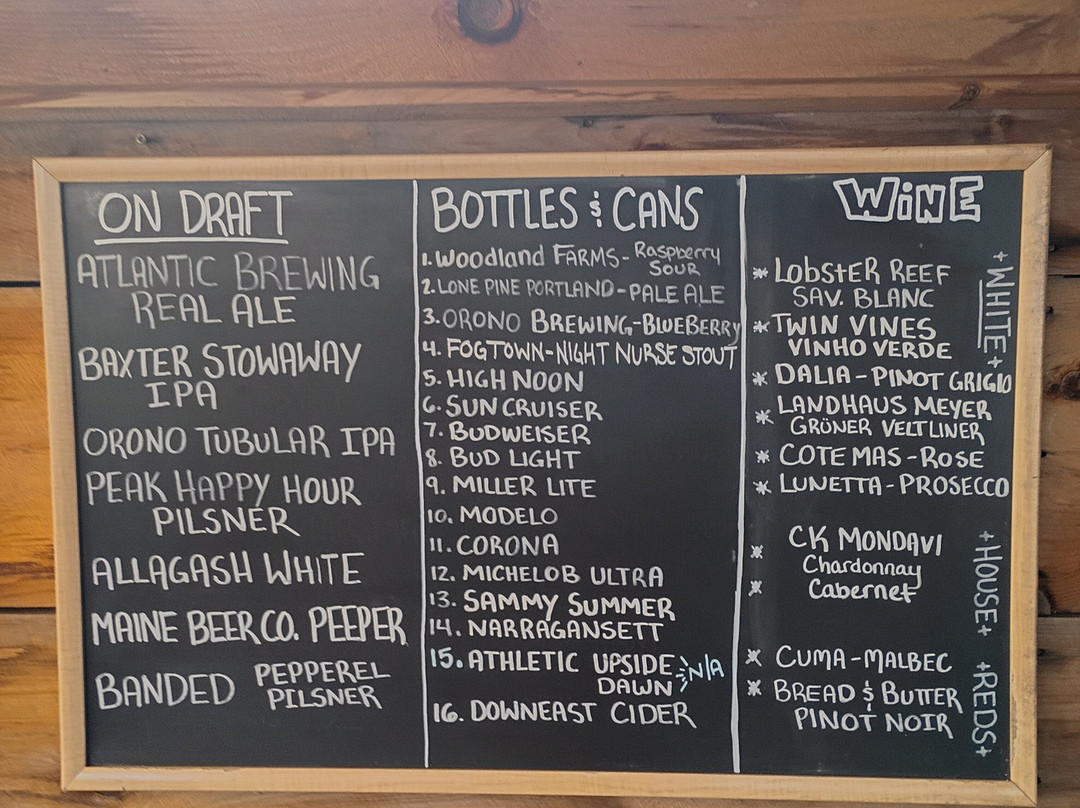 ON DRAFT
ATLANTIC BREWING
REAL ALE
BAXTER STOWAWAY
IPA
ORONO TUBULAR IPA
PEAK HAPPY HOUR
PILSNER
ALLAGASH WHITE
MAINE BEER CO. PEEPER
BANDED PEPPEREL
PILSNER
BOTTLES & CANS
1. Woodland FARMS - Raspberry
SOUR
2. LONE PINE PORTLAND - PALE ALE
3. ORONO BREWING - BLUEBERRY
4. FOGTOWN - NIGHT NURSE STOUT
5. HIGH NOON
6. SUN CRUISER
7. BUDWEISER
8. BUD LIGHT
9. MILLER LITE
10. MODELO
11. CORONA
12. MICHELOB ULTRA
13. SAMMY SUMMER
14. NARRAGANSETT
15. ATHLETIC UPSIDE N/A
DAWN
16. DOWNEAST CIDER
WiNE
+WHITE+
* LObSTER REEF
SAV. BLANC
* TWIN VINES
VINHO VERDE
* DALIA - PINOT GRIGIO
* LANDHAUS MEYER
GRÜNER VELTLINER
* COTE MAS - ROSE
* LUNETTA - PROSECCO
+HOUSE+
CK MONDAVI
* Chardonnay
* Cabernet
+REDS+
* CUMA - MALBEC
* BREAD & BUTTER
PINOT NOIR